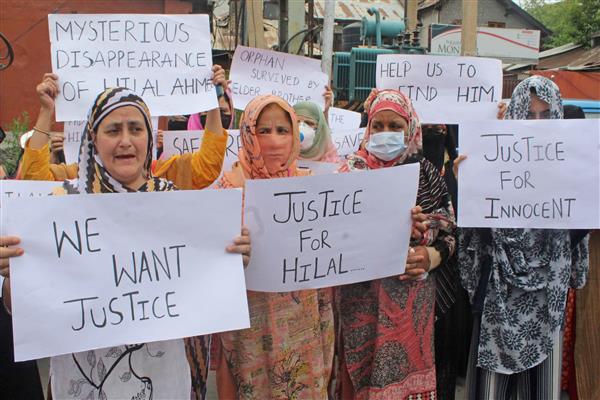 MYSTERIOUS
DISAPPEARANCE
OF HILAL AHMED
ORPHAN
SURVIVED BY
ELDER BROTHER
HELP US TO
FIND HIM
THE
SAFE
SAVE
WE
WANT
JUSTICE
JUSTICE
FOR
HILAL.....
JUSTICE
FOR
INNOCENT